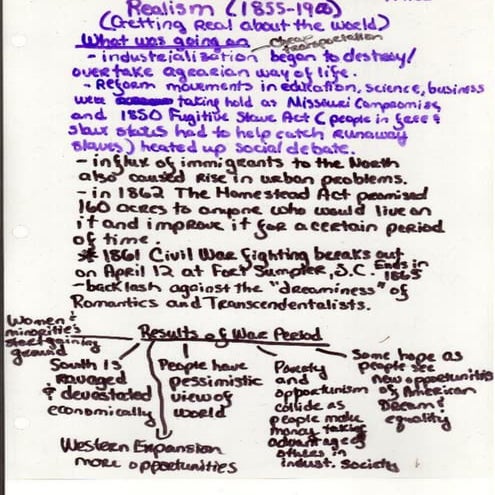 Realism (1855-1900)
(Getting Real about the world)
What was going on
cheap transportation
- industrialization began to destroy/
overtake agrarian way of life.
- Reform movements in education, science, business
were taking hold as Missouri Compromise
and 1850 Fugitive Slave Act (people in free &
slave states had to help catch runaway
slaves) heated up social debate.
- influx of immigrants to the North
also caused rise in urban problems.
- in 1862 The Homestead Act promised
160 acres to anyone who would live on
it and improve it for a certain period
of time.
* 1861 Civil War fighting breaks out
on April 12 at Fort Sumpter, S.C. Ends in 1865
- backlash against the "dreaminess" of
Romantics and Transcendentalists.
Results of War Period
Women &
minorities
start gaining
ground
South is
ravaged
& devastated
economically
Western Expansion
more opportunities
People have
pessimistic
view of
world
Poverty
and
opportunism
collide as
people make
money taking
advantage of
others in
indust. society
Some hope as
people see
new opportunities
of American
Dream &
equality